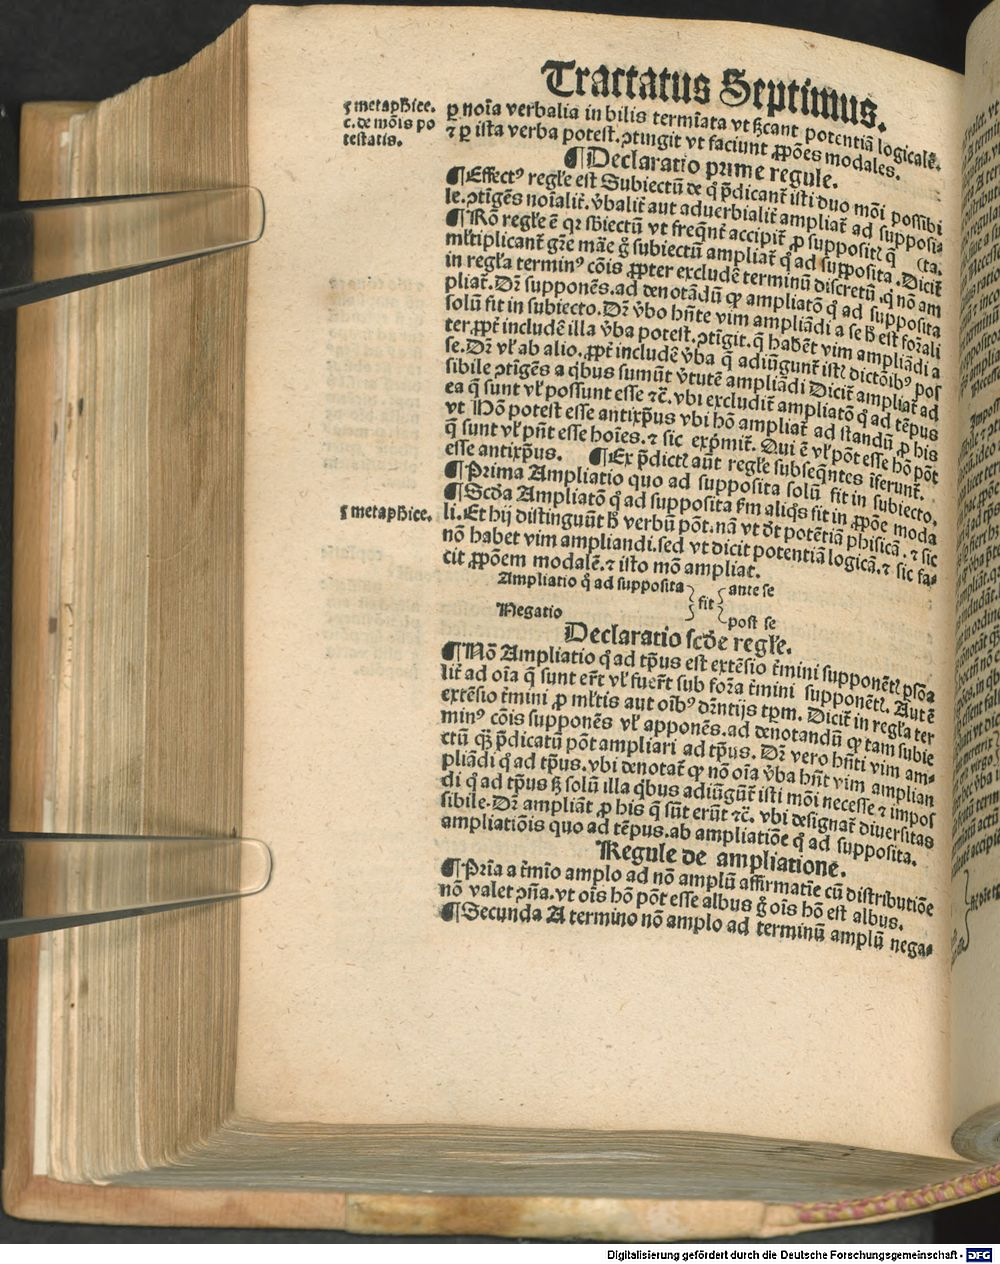 Tractatus Septimus.
ꝑ noīa verbalia in bilis termīata vt ſꝫcant potentiā logicalē.
⁊ ꝑ iſta verba poteſt.ꝯtingit vt faciunt ꝓpōes modales.
5 metaphice.
c. de mōis po
teſtatis.
¶Declaratio prime regule.
¶Effectꝰ regłe eſt Subiectū de q̄ p̄dicant̄ iſti duo mōi poſſibi
le.ꝯtīgēs noīalit̄.v̄balit̄ aut aduerbialit̄ ampliat̄ ad ſuppoſi⸗
¶Rō regłe ē qꝛ ſbiectū vt freqn̄t accipit̄ ꝓ ſuppoſitꝭ q̄ (ta.
młtiplicant̄ gr̄e māe g̊ ſubiectū ampliat̄ q̊ ad ſuppoſita. Dicit̄
in regła terminꝰ cōis ꝓpter excludē terminū diſcretū .q̄ nō am
pliat̄. Dꝛ̄ ſupponēs.ad denotādū ꝙ ampliatō q̊ ad ſuppoſita
ſolū fit in ſubiecto. Dꝛ̄ v̄bo hn̄te vim ampliādi a ſe h̄ eſt foꝛ̄ali
ter.ꝓpt̄ includē illa v̄ba poteſt.ꝯtīgit.q̄ habēt vim ampliādi a
ſe. Dꝛ̄ vł ab alio. ꝓpt̄ includē v̄ba q̄ adiūgunt̄ iſtꝭ dictōibꝰ poſ
ſibile ꝯtīgēs a q̄bus ſumūt v̄tutē ampliādi Dicit̄ ampliat̄ ad
ea q̄ ſunt vł poſſunt eſſe ⁊c̄. vbi excludit̄ ampliatō q̊ ad tēpus
vt Hō poteſt eſſe antixp̄us vbi hō ampliat̄ ad ſtandū ꝓ his
q̄ ſunt vł pn̄t eſſe hoīes.⁊ ſic exp̄mit̄. Qui ē vł pōt eſſe hō pōt
eſſe antixp̄us. ¶Ex p̄dictꝭ aūt regłe ſubſeqn̄tes īferunt̄.
¶Prima Ampliatio quo ad ſuppoſita ſolū fit in ſubiecto.
¶Scd̄a Ampliatō q̊ ad ſuppoſita ẜm aliq̄s fit in ꝓpōe moda
5 metaphice.
li. Et hij diſtinguūt h̄ verbū pōt.nā vt d̄t potētiā phiſicā .⁊ ſic
nō habet vim ampliandi.ſed vt dicit potentiā logicā.⁊ ſic fa⸗
cit ꝓpōem modalē.⁊ iſto mō ampliat.
Ampliatio q̊ ad ſuppoſita ante ſe
fit
Negatio poſt ſe
Declaratio ſcd̄e regłe.
¶Nō Ampliatio q̊ ad tp̄us eſt extēſio t̄mini ſupponētꝭ ꝑſōa
lit̄ ad oīa q̄ ſunt er̄t vł fuer̄t ſub foꝛ̄a t̄mini ſupponētꝭ. Aut ē
extēſio t̄mini ꝓ młtis aut oībꝰ dr̄ntijs tp̄m. Dicit̄ in regła ter
minꝰ cōis ſupponēs vł apponēs.ad denotandū ꝙ tam ſubie
ctū qꝫ̄ p̄dicatū pōt ampliari ad tp̄us. Dꝛ̄ vero hn̄ti vim am⸗
pliādi q̊ ad tp̄us.vbi denotat̄ ꝙ nō oīa v̄ba hn̄t vim amplian
di q̊ ad tp̄us ſꝫ ſolū illa q̄bus adiūgūt̄ iſti mōi neceſſe ⁊ impoſ
ſibile. Dꝛ̄ ampliāt̄ ꝓ his q̄ ſūt erūt ⁊c̄. vbi deſignat̄ diuerſitas
ampliatiōis quo ad tēpus.ab ampliatiōe q̊ ad ſuppoſita.
Regule de ampliatione.
¶Pria a t̄mīo amplo ad nō amplū affirmatīe cū diſtributiōe
nō valet ꝯn̄a.vt oīs hō pōt eſſe albus g̊ oīs hō eſt albus.
¶Secunda A termino nō amplo ad terminū amplū nega⸗
Digitalisierung gefördert durch die Deutsche Forschungsgemeinschaft - DFG